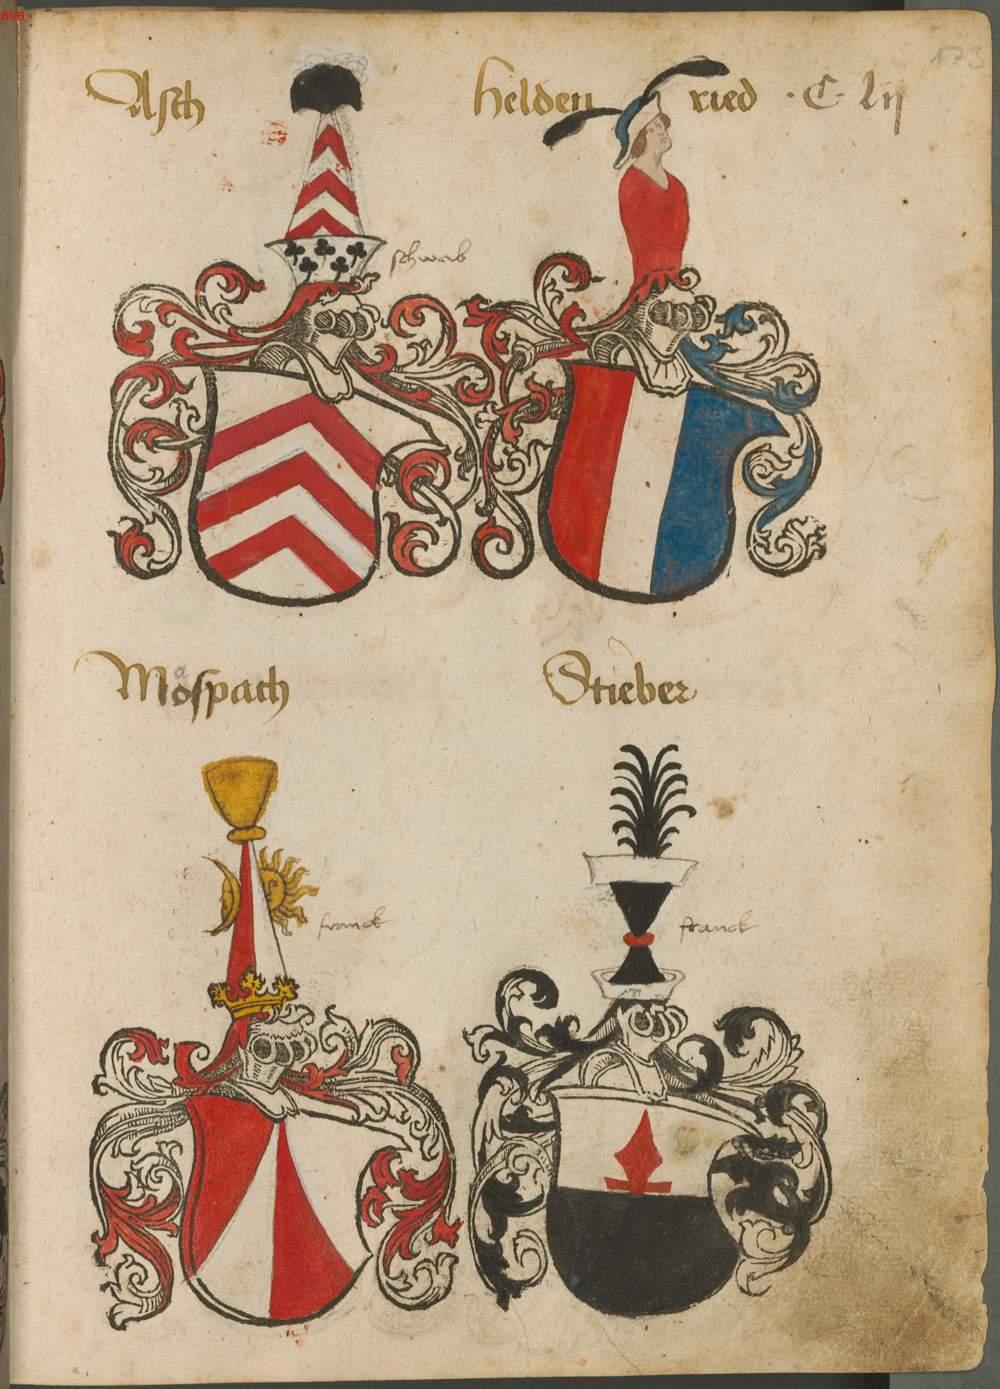 898
173
Asch
Helden ried · C · lij
schwab
Mospach
a
Stieber
franck
franck